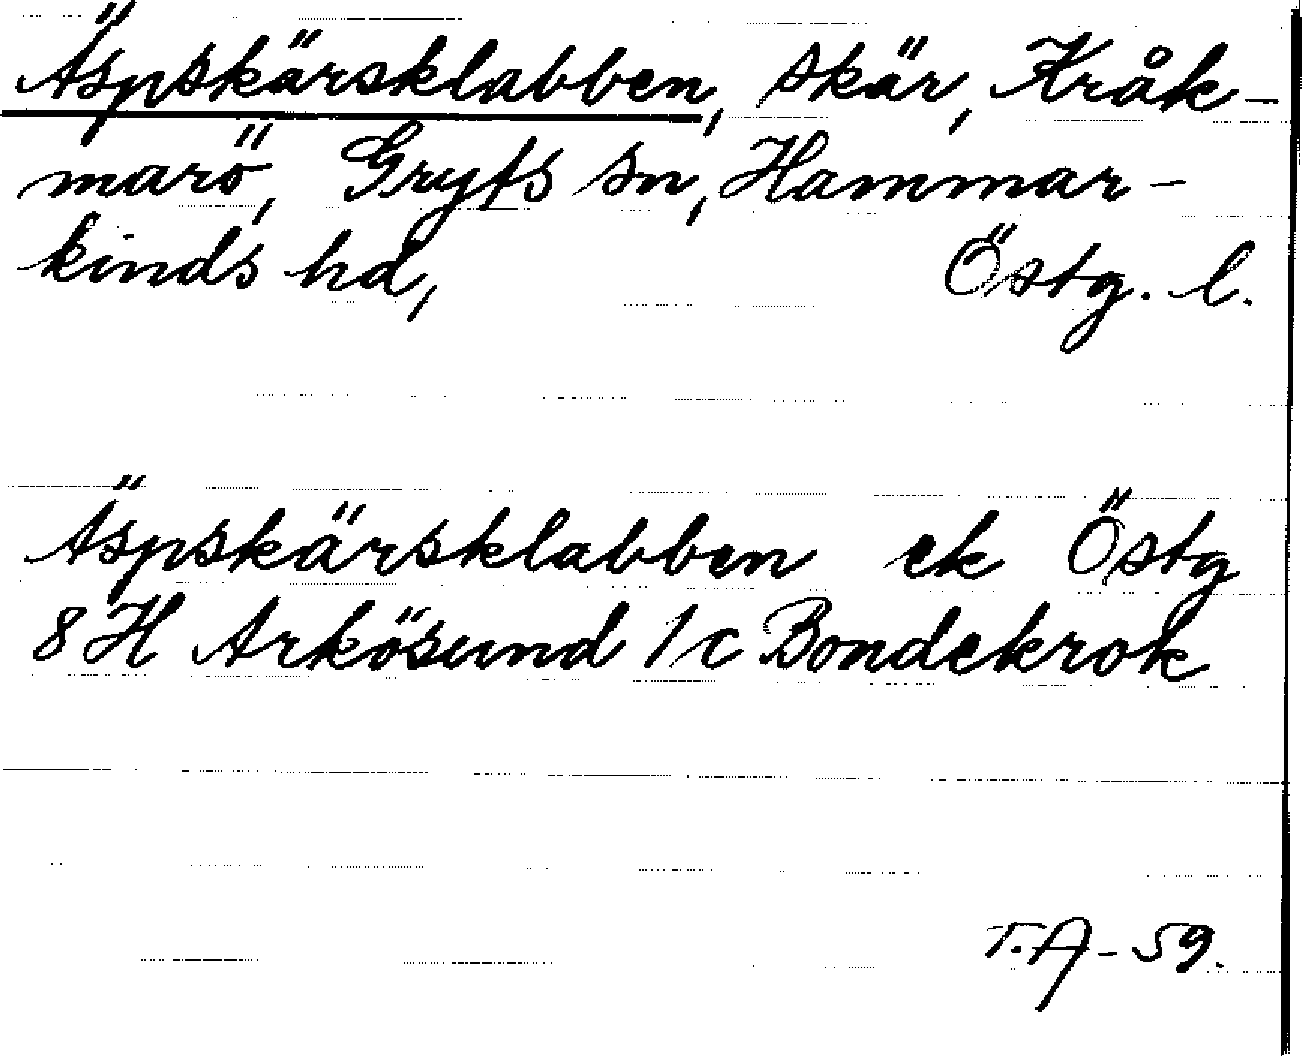 Äspskärsklabben, skär, Kråk-
marö, Gryts sn, Hammar-
kinds hd, Östg. l.
Äspskärsklabben ek Östg
8 H Arkösund 1/c Bondekrok
T.A-59.